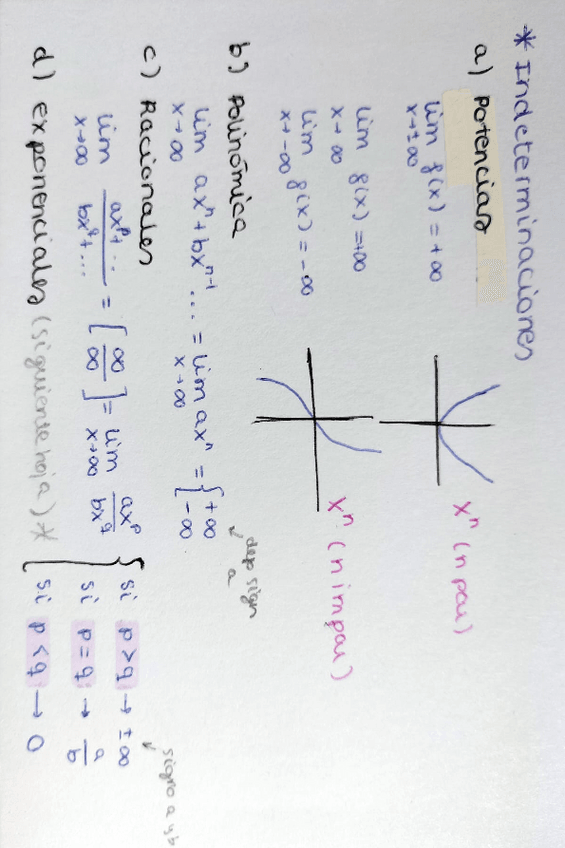 * Indeterminaciones
a) Potencias
lim f(x) = +∞
x→±∞
xⁿ (n par)
lim f(x) = +∞
x→∞
lim f(x) = -∞
x→-∞
xⁿ (n impar)
b) Polinómica
lim axⁿ + bxⁿ⁻¹ ... = lim axⁿ = { +∞ -∞
x→∞ x→∞
dep sign
a
c) Racionales
lim axᵖ+... / bx^q+... = [∞/∞] = lim axᵖ / bx^q
x→∞ x→∞
{ si p>q → ±∞
signo a y b
si p=q → a/b
si p<q → 0
d) exponenciales (siguiente hoja) *